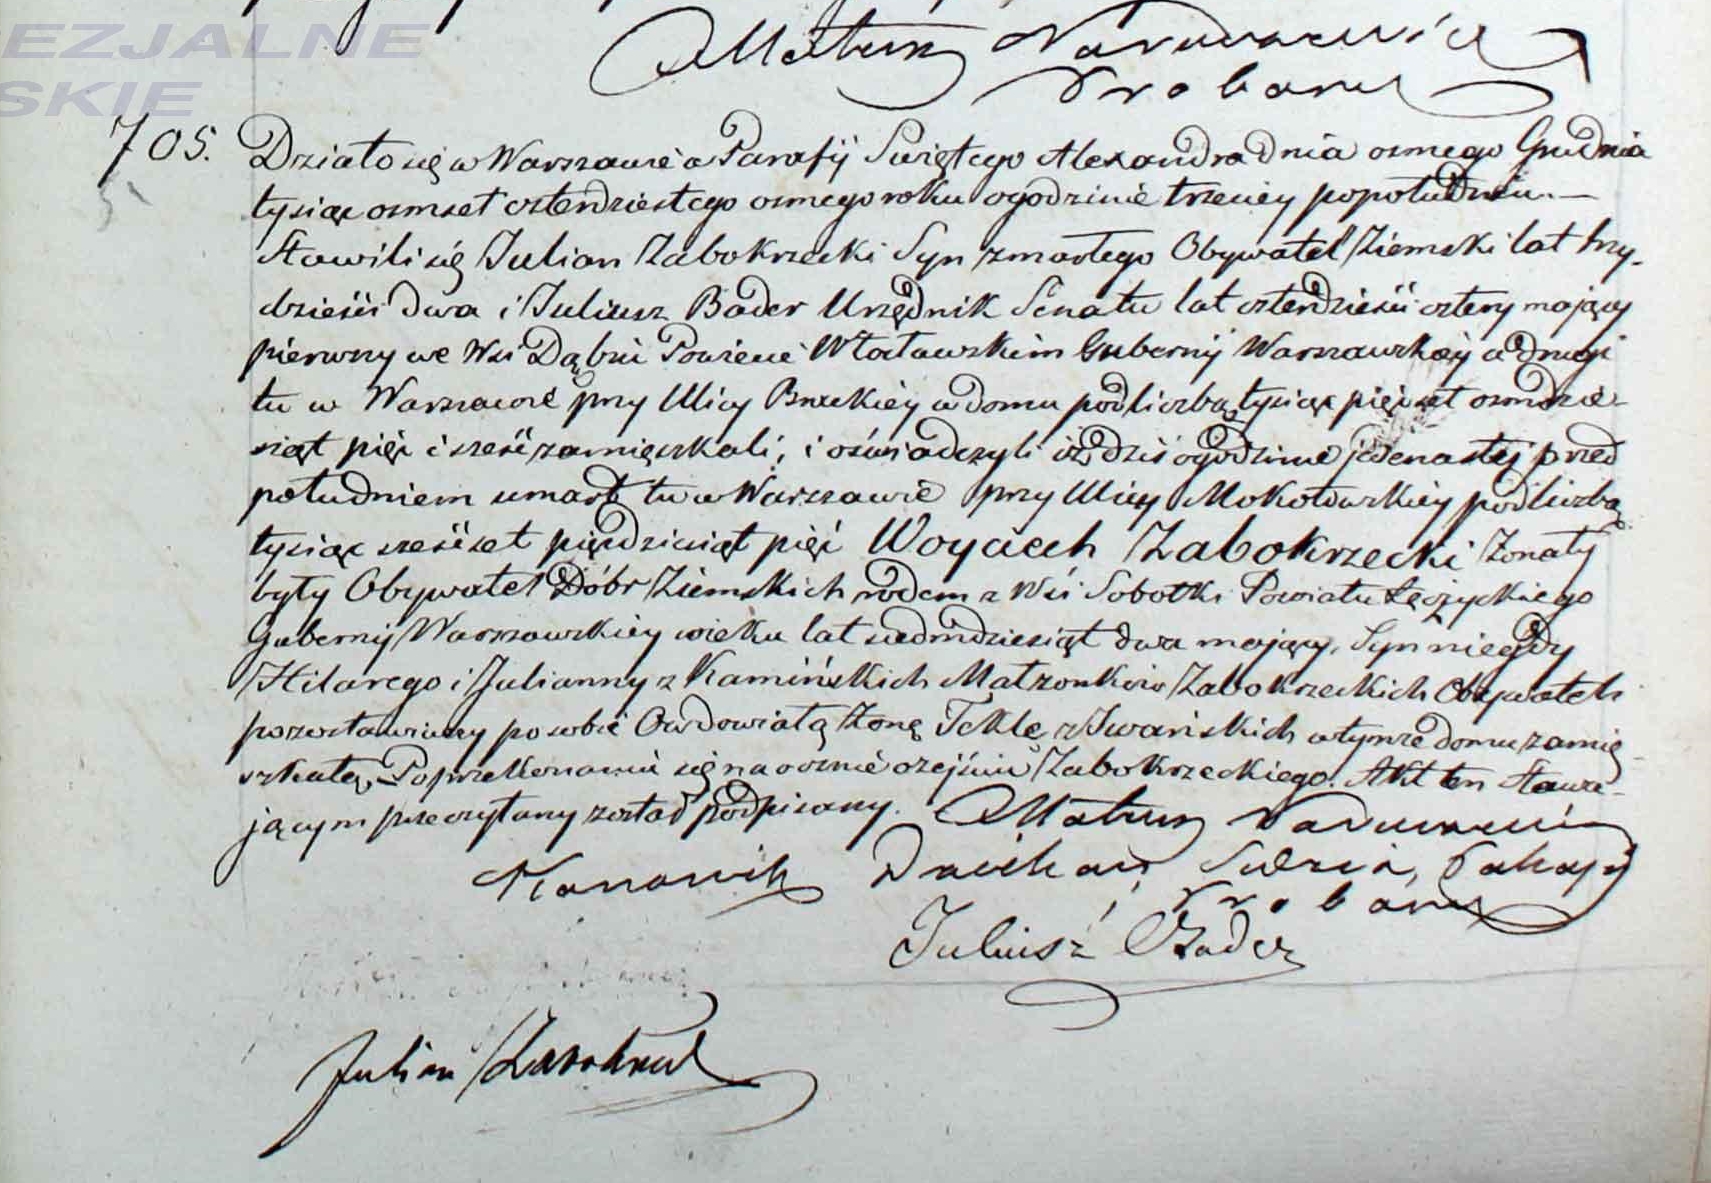 EZJALNE
SKIE
Proboszcz
705. Działo się w Warszawie w Parafij Swiętego Alexandra dnia osmego Grudnia
tysiąc osmset czterdziestego osmego roku o godzinie trzeciey popołudniu.—
Stawili się Julian Zabokrzecki Syn zmarłego Obywatel Ziemski lat trzy-
dzieści dwa i Juliusz Bader Urzędnik Senatu lat czterdzieści cztery mający
pierwszy we Wsi Dąbiu Powiecie Włocławskim Gubernij Warszawskiey a drugi
tu w Warszawie przy Ulicy Brackiey w domu pod liczbą tysiąc pięćset osmdzie-
siąt pięć i sześć zamięszkali, i oświadczyli iż dziś o godzinie jedenastej przed
południem umarł tu w Warszawie przy Ulicy Mokotowskiey pod liczbą
tysiąc sześćset pięćdziesiąt pięć Woyciech Zabokrzecki Zonaty
były Obywatel Dóbr Ziemskich rodem z Wsi Sobotki Powiatu Łęczyckiego
Gubernij Warszawskiey wieku lat siedmdziesiąt dwa mający, Syn niegdy
Hilarego i Julianny z Kamińskich Małżonków Zabokrzeckich Obywateli
pozostawiwszy po sobie Owdowiałą Zonę Teklę z Iwańskich w tymże domu zamię-
szkałą, Po przekonaniu się naocznie o zejściu Zabokrzeckiego. Akt ten Stawa-
jącym przeczytany został podpisany.
Kanonik Dziekan, Sędzia,
Proboszcz
Juliusz Bader
Julian